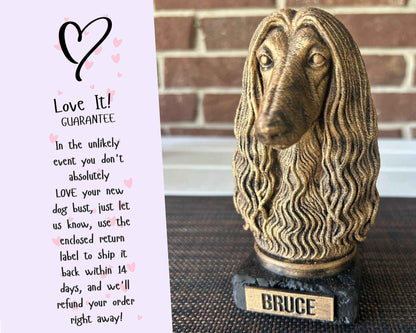 Love It!
GUARANTEE
In the unlikely
event you don't
absolutely
LOVE your new
dog bust, just let
us know, use the
enclosed return
label to ship it
back within 14
days, and we'll
refund your order
right away!
BRUCE